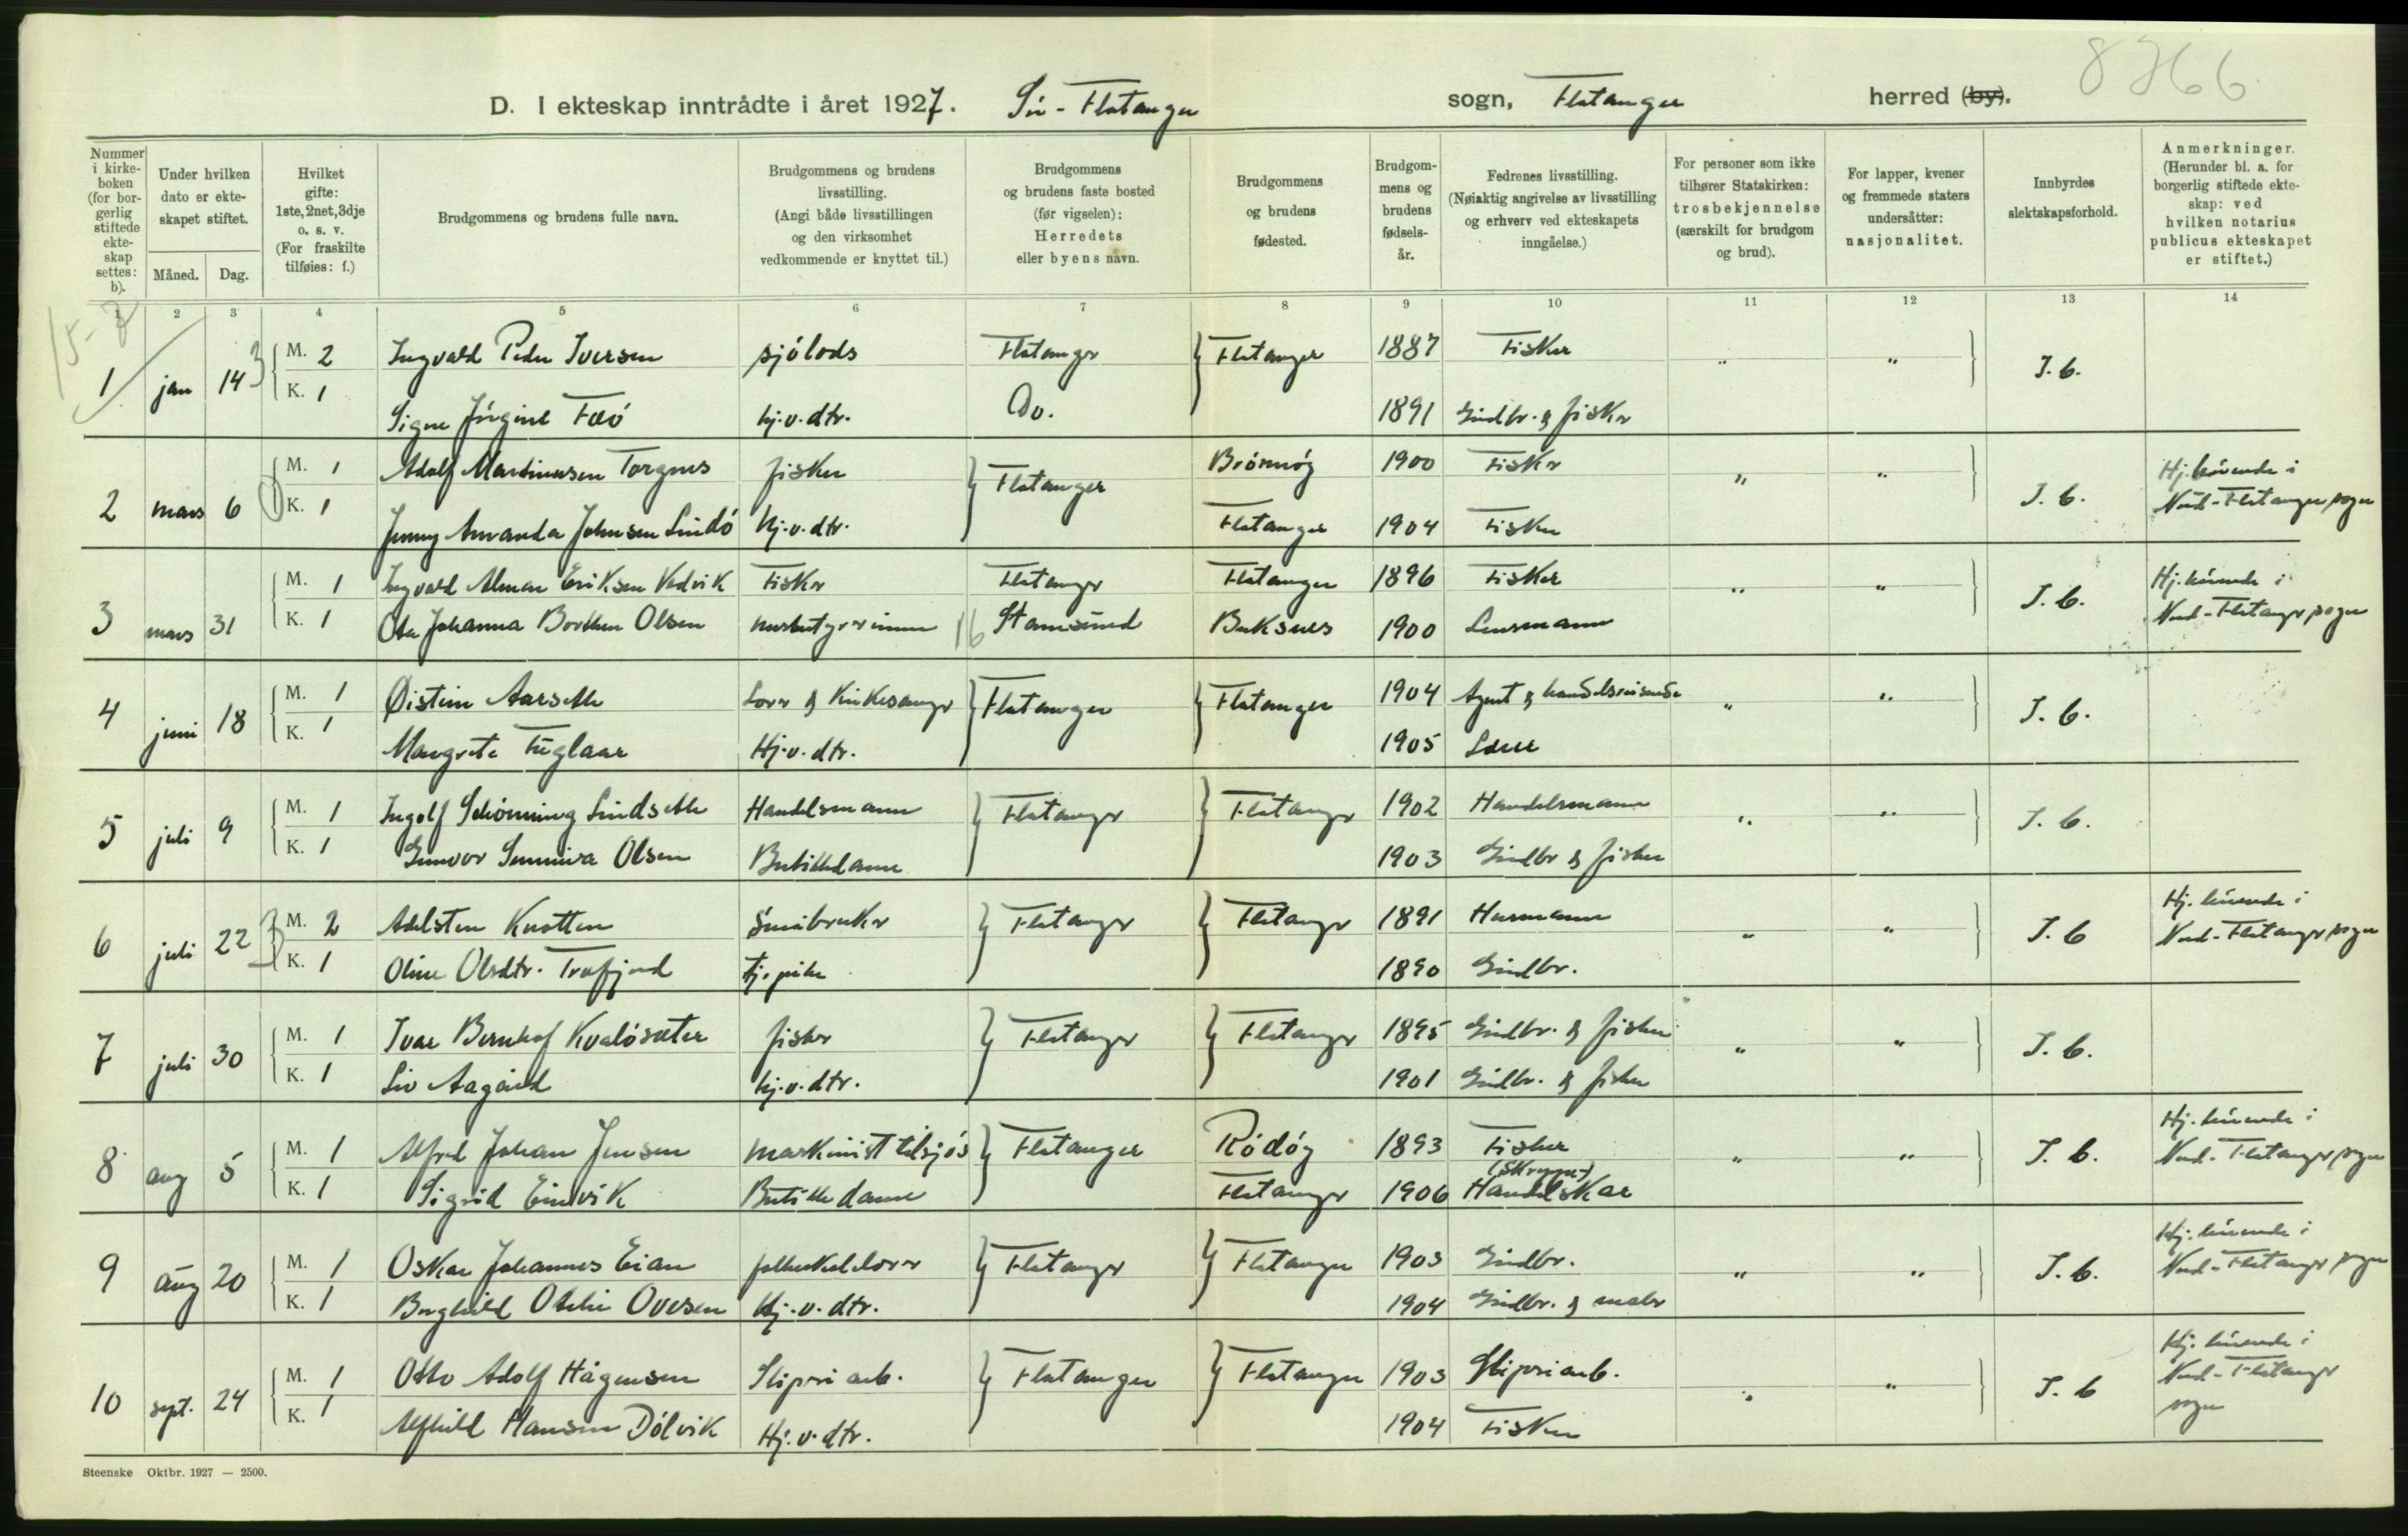 8766
D. I ekteskap inntrådte i året 1927. Sør-Flatanger sogn, Flatanger herred (by).
Nummer i kirkeboken (for borgerlig stiftede ekteskap settes: b).
Under hvilken dato er ekteskapet stiftet.
Måned. Dag.
Hvilket gifte: 1ste, 2net, 3dje o. s. v. (For fraskilte tilføies: f.)
Brudgommens og brudens fulle navn.
Brudgommens og brudens livsstilling. (Angi både livsstillingen og den virksomhet vedkommende er knyttet til.)
Brudgommens og brudens faste bosted (før vigselen): Herredets eller byens navn.
Brudgommens og brudens fødested.
Brudgommens og brudens fødselsår.
Fedrenes livsstilling. (Nøiaktig angivelse av livsstilling og erhverv ved ekteskapets inngåelse.)
For personer som ikke tilhører Statskirken: trosbekjennelse (særskilt for brudgom og brud).
For lapper, kvener og fremmede staters undersåtter: nasjonalitet.
Innbyrdes slektskapsforhold.
Anmerkninger. (Herunder bl. a. for borgerlig stiftede ekteskap: ved hvilken notarius publicus ekteskapet er stiftet.)
1 2 3 4 5 6 7 8 9 10 11 12 13 14
1 jan 14 M. 2 Ingvald Peder Iversen sjólods Flatanger Flatanger 1887 Fisker " " I. b.
K. 1 Signe Jørgine Faó hj.v.dtr. Do. 1891 Gårdbr. & fisker
2 mars 6 M. 1 Adolf Martinusen Torgnes fisker Flatanger Brónnóy 1900 Fisker " " I. b. Hj.hórende i Nord-Flatanger sogn
K. 1 Jenny Amanda Johnsen Lindó hj.v.dtr. Flatanger 1904 Fisker
3 mars 31 M. 1 Ingvald Alman Eriksen Vedvik Fisker Flatanger Flatanger 1896 Fisker " " I. b. Hj.hórende i Nord-Flatanger sogn
K. 1 Johanna Borthen Olsen 16 Stamsund Buksnes 1900 Lensmann
4 juni 18 M. 1 Øistein Aarseth Lærer & Kirkesanger Flatanger Flatanger 1904 Agent & handelsreisende " " I. b.
K. 1 Margrete Fuglaar Hj.v.dtr. 1905 Lærer
5 juli 9 M. 1 Ingolf Schiønning Lindseth Handelsmann Flatanger Flatanger 1902 Handelsmann " " I. b.
K. 1 Gunvor Sunniva Olsen Butikkdame 1903 Gårdbr & fisker
6 juli 22 M. 2 Adelsten Knotten Småbruker Flatanger Flatanger 1891 Husmann " " I. b Hj. hórende i Nord-Flatanger sogn
K. 1 Oline Olsdtr. Trefjord tj.pike 1890 Gårdbr.
7 juli 30 M. 1 Ivar Bernhof Kvalósæter fisker Flatanger Flatanger 1895 Gårdbr. & fisker " " I. b.
K. 1 Liv Aagård hj.v.dtr. 1901 Gårdbr. & fisker
8 aug 5 M. 1 Alfred Johan Jensen maskinist tilsjós Flatanger Ródóy 1893 Fisker " " I. b. Hj. hórende i Nord-Flatanger sogn
K. 1 Sigrid Einvik Butikkdame Flatanger 1906 Handelskar
9 aug 20 M. 1 Oskar Johannes Eian folkeskolelærer Flatanger Flatanger 1903 Gårdbr. " " I. b. Hj. hórende i Nord-Flatanger sogn
K. 1 Borghild Otelie Ovesen Hj.v.dtr. 1904 Gårdbr. & maler
10 sept. 24 M. 1 Otto Adolf Hågensen Sliperiarb. Flatanger Flatanger 1903 Sliperiarb. " " I. b Hj. hórende i Nord-Flatanger sogn
K. 1 Alfhild Hansen Dólvik Hj.v.dtr. 1904 Fisker
Steenske Oktbr. 1927 — 2500.